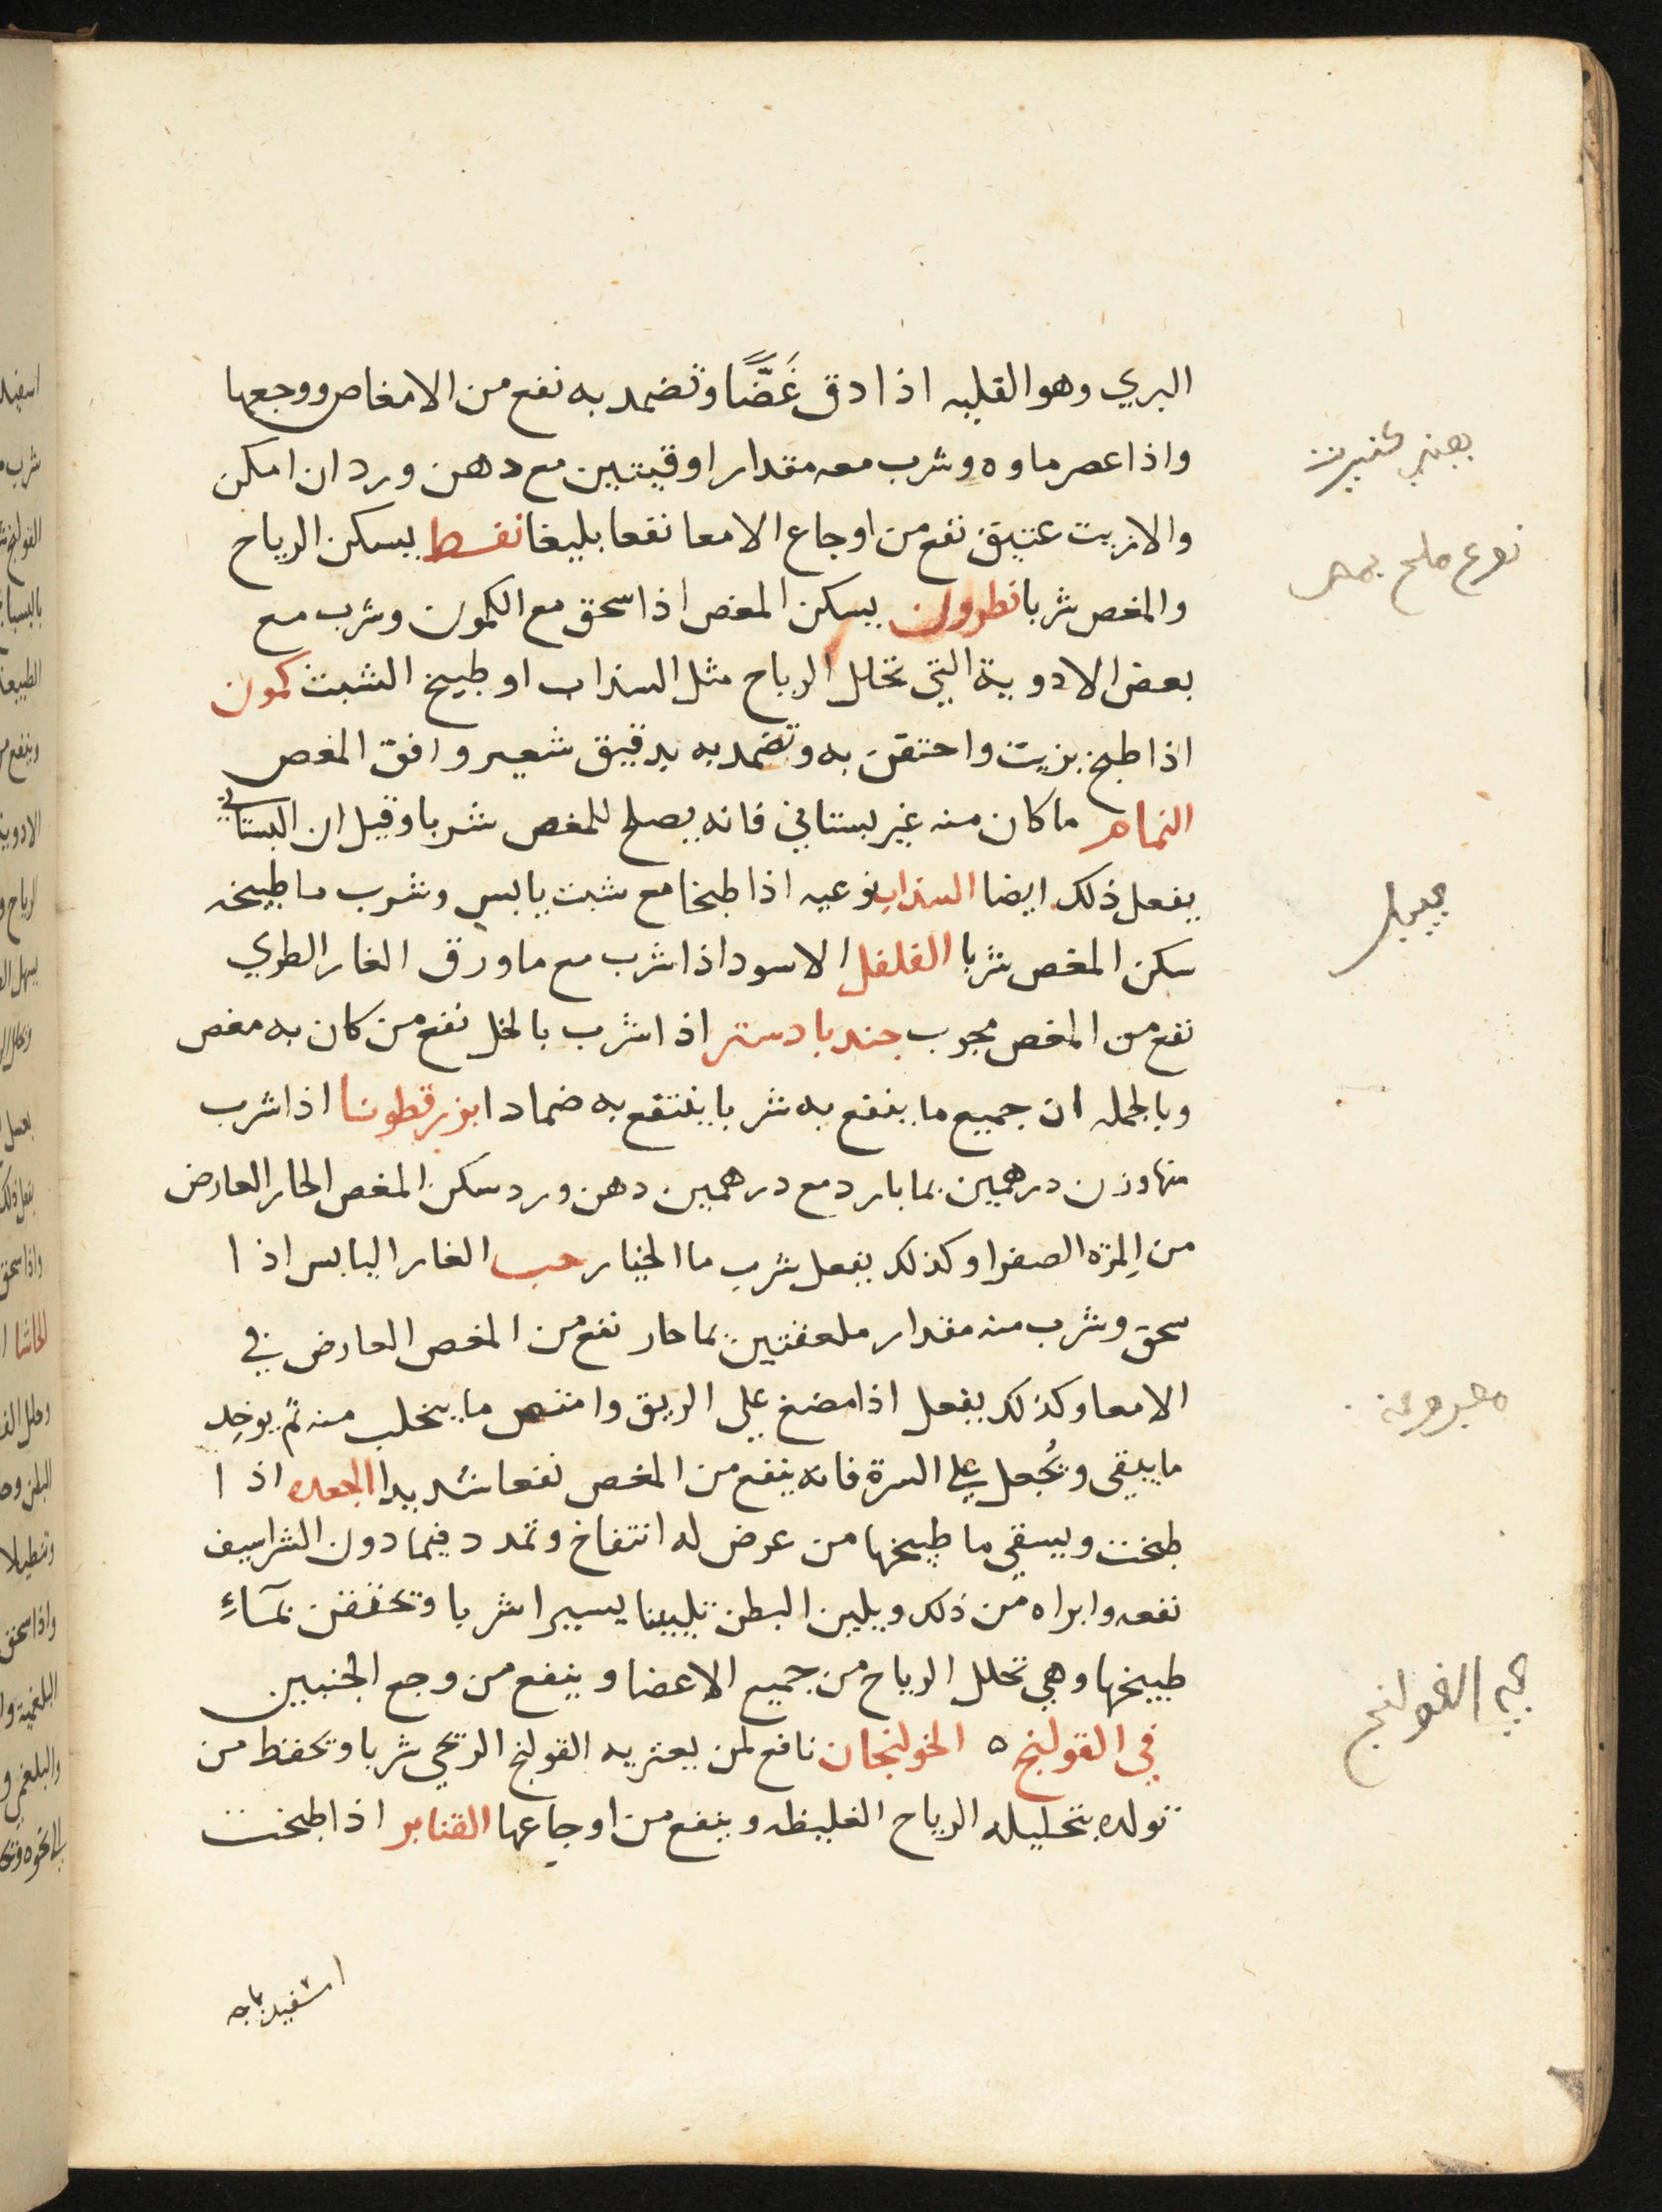 البري وهو القليه اذا دق غَضًّا وتضمد به نفع من الامغاص ووجعها
واذا عصر ماوه وشرب معه مقدار اوقيتين مع دهن ورد ان امكن
والا زيت عتيق نفع من اوجاع الامعا نفعا بليغا نفط يسكن الرياح
والمغص شربا نطرون يسكن المغص اذا سحق مع الكمون وشرب مع
بعض الادوية التي تحلل الرياح مثل السذاب او طبيخ الشبث كمون
اذا طبخ بزيت واحتقن به وتضمد به بدقيق شعير وافق المغص
النمام ما كان منه غير بستاني فانه يصلح للمغص شربا وقيل ان البستاني
يفعل ذلك ايضا السذاب نوعيه اذا طبخا مع شبث يابس وشرب ما طبيخه
سكن المغص شربا الفلفل الاسود اذا شرب مع ما ورق الغار الطري
نفع من المغص مجرب جندبادستر اذا شرب بالخل نفع من كان به مغص
وبالجمله ان جميع ما ينفع به شربا ينتفع به ضمادا بزرقطونا اذا شرب
منها وزن درهمين بما بارد مع درهمين دهن ورد سكن المغص الحار العارض
من المِرّه الصفرا وكذلك يفعل شرب ما الخيار حب الغار اليابس اذا
سحق وشرب منه مقدار ملعقتين بما حار نفع من المغص العارض في
الامعا وكذلك يفعل اذا مضغ علي الريق وامتص ما يتحلب منه ثم يوخذ
ما يبقي ويُجعل علي السرة فانه ينفع من المغص نفعا شديدا الجعده اذا
طبخت ويسقي ما طبيخها من عرض له انتفاخ وتمدد فيما دون الشراسيف
نفعه وابراه من ذلك ويلين البطن تليينا يسيرا شربا وتحتقن بمآء
طبيخها وهي تحلل الرياح من جميع الاعضا وينفع من وجع الجنبين
في القولنج ه الخولنجان نافع لمن يعتريه القولنج الريحي شربا وتحفظ من
تولده بتحليله الرياح الغليظه وينفع من اوجاعها القنابر اذا طبخت
اسفيدباجه
نوع ملح
القولنج